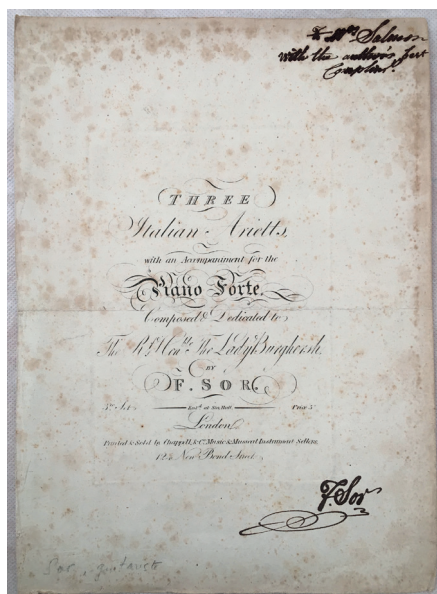 To Mrs Salmon
with the author's best
Complimts
THREE
Italian Arietts,
with an Accompaniment for the
Piano Forte,
Composed & Dedicated to
The Rt. Honble. The Lady Burghersh
BY
F. SOR.
3rd Set. Entd. at Sta. Hall Price 3s
London
Printed & Sold by Chappell & Co. Music & Musical Instrument Sellers,
124 New Bond Street.
F. Sor
Sor